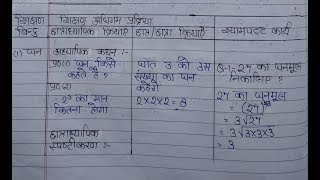 शिक्षण बिन्दु
शिक्षण अधिगम प्रक्रिया
छात्राध्यापिक क्रियाएँ
छात्र/छात्रा क्रियाएँ
श्यामपट्ट कार्य
(1) घन
अध्यापिक कथन :-
प्र०(1) घन किसे
कहते हैं ?
प्र०(2)
= 2³ का मान
कितना होगा
छात्राध्यापिक
स्पष्टीकरण :-
घात 3 को उस
संख्या का घन
कहेंगे
2×2×2 = 8
Q-1 = 27 का घनमूल
निकालिए ?
27 का घनमूल
= (27)^1/3
= 3√27
= 3√3×3×3
= 3